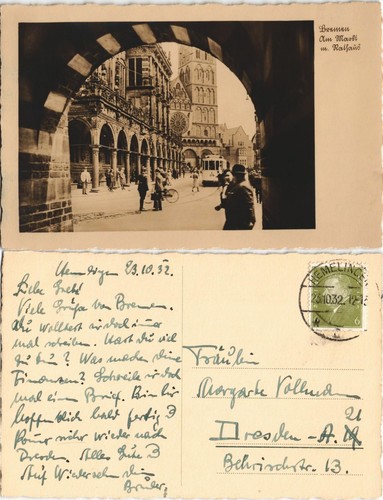 Bremen
Am Markt
m. Rathaus
23.10.32.
Liebe
Viele Grüße von Bremen.
Du wolltest mir doch immer
mal schreiben. Hast du viel
zu tun? Was machen deine
Finanzen? Schreibe mir doch
mal einen Brief. Bin ich
hoffentlich bald fertig
wieder nach
Dresden. Alles Gute
Auf Wiedersehen dein
Bruder
HEMELINGEN
23.10.32.12-13
6
Fräulein
Margarte Vollmann
Dresden-A. 21
13.